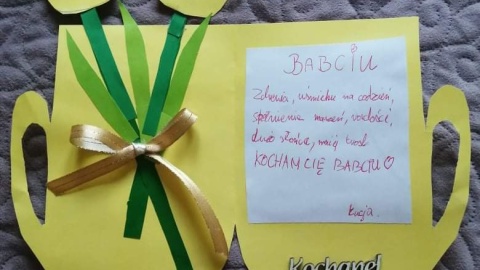 BABCIU
Zdrowia, uśmiechu na codzień,
spełnienia marzeń, radości,
dużo słońca, mniej trosk
KOCHAM CIĘ BABCIU♡
Łucja
Kochanej